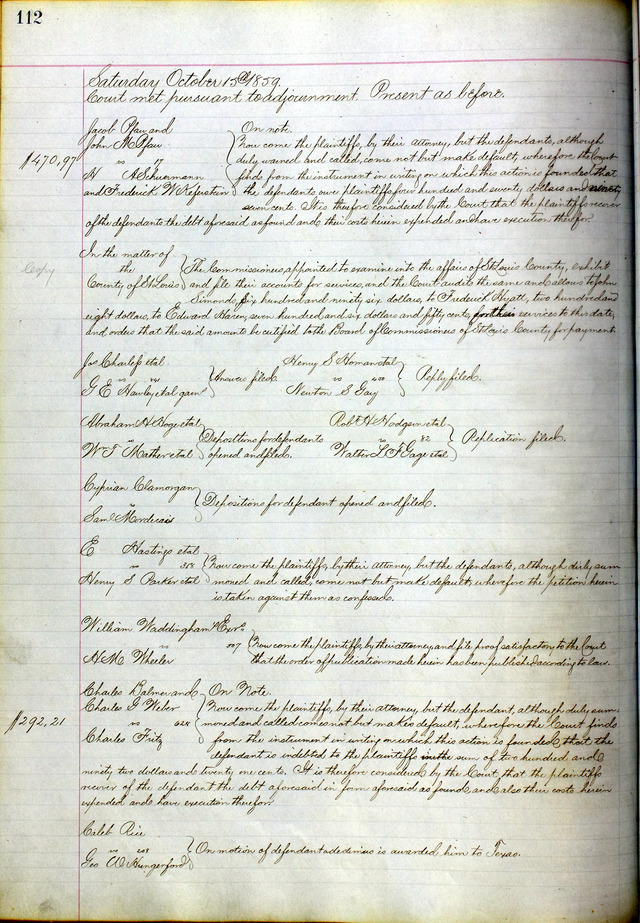 112
Saturday October 15th 1859
Court met pursuant to adjournment. Present as before.
Jacob Pfau and
John M Pfau
vs 7
$470,97
H A Schurmann
and Frederick W
On note.
Now come the plaintiffs, by their attorney, but the defendants, although
duly warned and called, come not but make default, wherefore the Court
finds from the instrument in writing on which this action is founded that
the defendants owe plaintiffs four hundred and seventy dollars and ninety
seven cents. It is therefore considered by the Court that the plaintiffs recover
of the defendants the debt aforesaid as found and their costs herein expended and have execution therefor.
Copy
In the matter of
the
County of St Louis
The Commissioners appointed to examine into the affairs of St Louis County, exhibit
and file their accounts for services, and the Court audits the same and allows to John
Simonds, six hundred and ninety six dollars, to Frederick Hyatt, two hundred and
eight dollars, to Edward Haren, seven hundred and six dollars and fifty cents, for their services to this date,
and orders that the said amounts be certified to the Board of Commissioners of St Louis County for payment.
Jos Charless etal
vs
G E Hawley etal
Answer filed.
Henry S Homan etal
vs
Newton S Gay
Reply filed.
Abraham H Hoge etal
vs
W T Mather etal
Depositions for defendants
opened and filed.
Robt H Hodgson etal
vs 82
Walter L F Gage etal
Replication filed.
Cyprian Clamorgan
vs
Saml Mordecais
Depositions for defendant opened and filed.
E Hastings etal
vs
Henry S Parker etal
Now come the plaintiffs, by their attorney, but the defendants, although duly sum
moned and called, come not but make default, wherefore the petition herein
is taken against them as confessed.
William Waddingham Exr.
vs
H M Wheeler
Now come the plaintiffs, by their attorney, and file proof satisfactory to the Court
that the order of publication made herein has been published according to law.
Charles Balmer and
Charles G Weber
vs
$292,21
Charles Fritz
On Note.
Now come the plaintiffs, by their attorney, but the defendant, although duly sum-
moned and called comes not but makes default, wherefore the Court finds
from the instrument in writing on which this action is founded that the
defendant is indebted to the plaintiffs in the sum of two hundred and
ninety two dollars and twenty one cents. It is therefore considered by the Court, that the plaintiffs
recover of the defendant the debt aforesaid in form aforesaid as found, and also their costs herein
expended and have execution therefor.
Caleb Rice
vs
Geo W Hungerford
On motion of defendant a dedimus is awarded him to Texas.